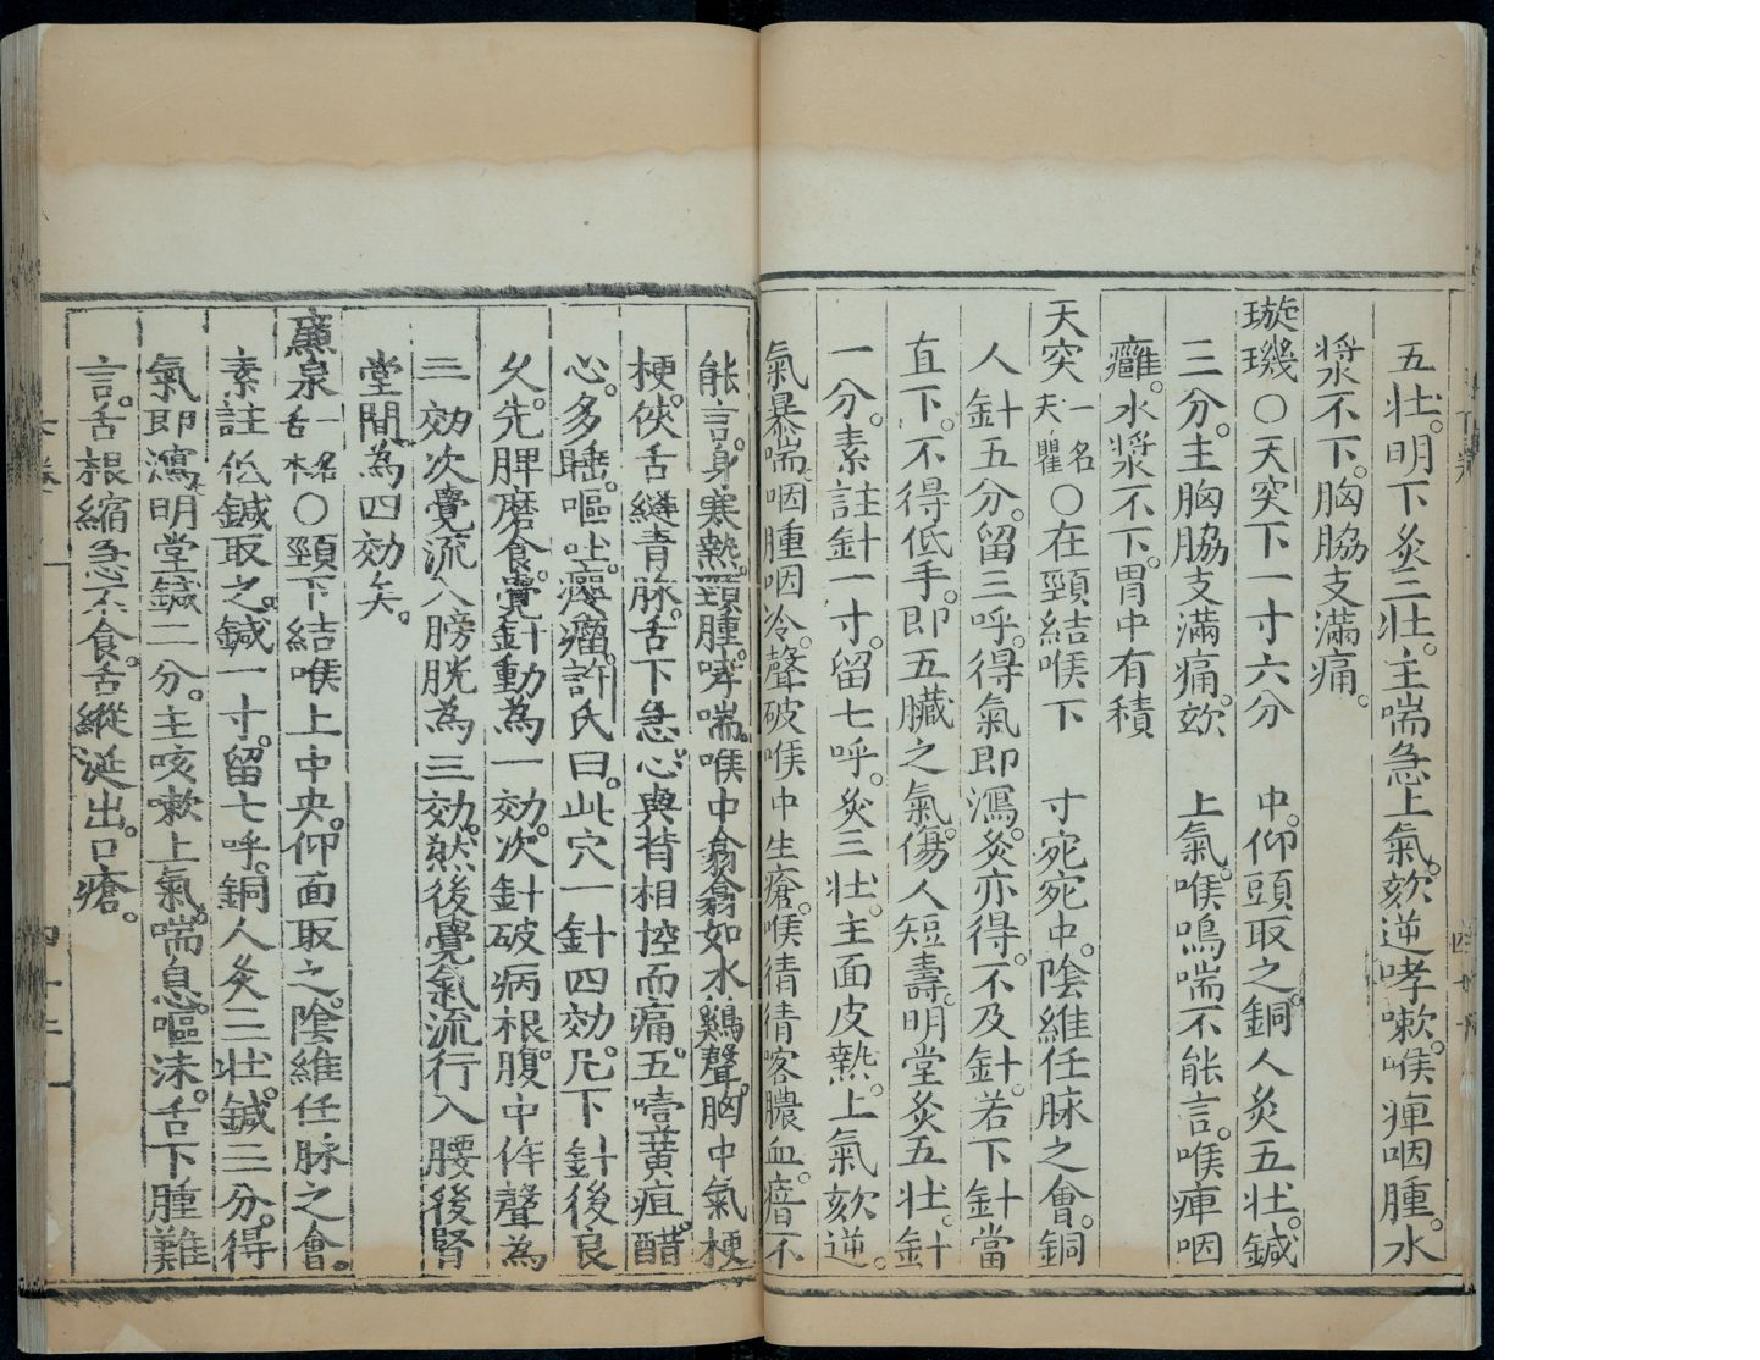 五壯。明下灸三壯。主喘急上氣。欬逆哮嗽。喉痺咽腫。水
漿不下。胸脇支滿痛。
璇璣○天突下一寸六分中。仰頭取之。銅人灸五壯。鍼
三分。主胸脇支滿痛。欬上氣。喉鳴喘不能言。喉痺咽
癰。水漿不下。胃中有積
天突一名天瞿○在頸結喉下寸宛宛中。陰維任脉之會。銅
人針五分。留三呼。得氣即瀉。灸亦得。不及針。若下針當
直下。不得低手。即五臟之氣。傷人短壽。明堂灸五壯。針
一分。素註針一寸。留七呼。灸三壯。主面皮熱。上氣欬逆。
氣暴喘。咽腫咽冷。聲破喉中生瘡。喉猜猜喀膿血。瘖不
能言。身寒熱。頸腫。哮喘。喉中翕翕如水鷄聲。胸中氣梗
梗。俠舌縫青脉。舌下急。心與背相控而痛。五噎黃疸。醋
心。多睡。嘔吐。癭瘤。許氏曰。此穴一針四効。凡下針後良
久。先脾磨食。覺針動為一効。次針破病根。腹中作聲為
二効次覺流入膀胱為三効。然後覺氣流行入腰後腎
堂間。為四効矣。
廉泉一名舌本○頸下結喉上中央。仰面取之。陰維任脉之會。
素註低鍼取之。鍼一寸。留七呼。銅人灸三壯。鍼三分。得
氣即瀉。明堂鍼二分。主咳嗽上氣。喘息。嘔沫。舌下腫難
言。舌根縮急不食。舌縱涎出。口瘡。